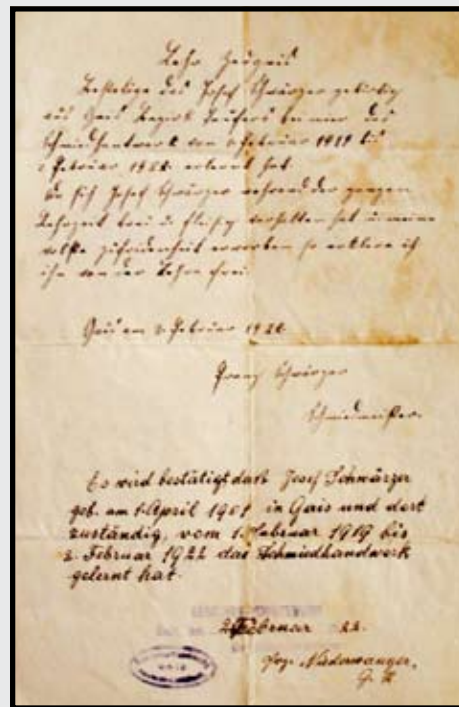 Lehr Zeugnis
Bestetige das Josef Schwärzer gebirtig
aus Gais Bezirk Taufers bei mir das
Schmiedhantwerk von 1 Februar 1919 bis
2 Februar 1922 erlernt hat
Da sich Josef Schwärzer wehrend der ganzen
Lehrzeit treu u. fleisig verhalten hat u. meine
volste zufridenheit erworben so erklere ich
ihn von der Lehre frei.
Gais am 2 Februar 1922
Franz Schwärzer
Schmiedmeister.
Es wird bestätigt dass Josef Schwärzer
geb. am 1. April 1901 in Gais und dort
zuständig, vom 1. Februar 1919 bis
2. Februar 1922 das Schmiedhandwerk
gelernt hat.
2 Februar 22.
Niederwanger,